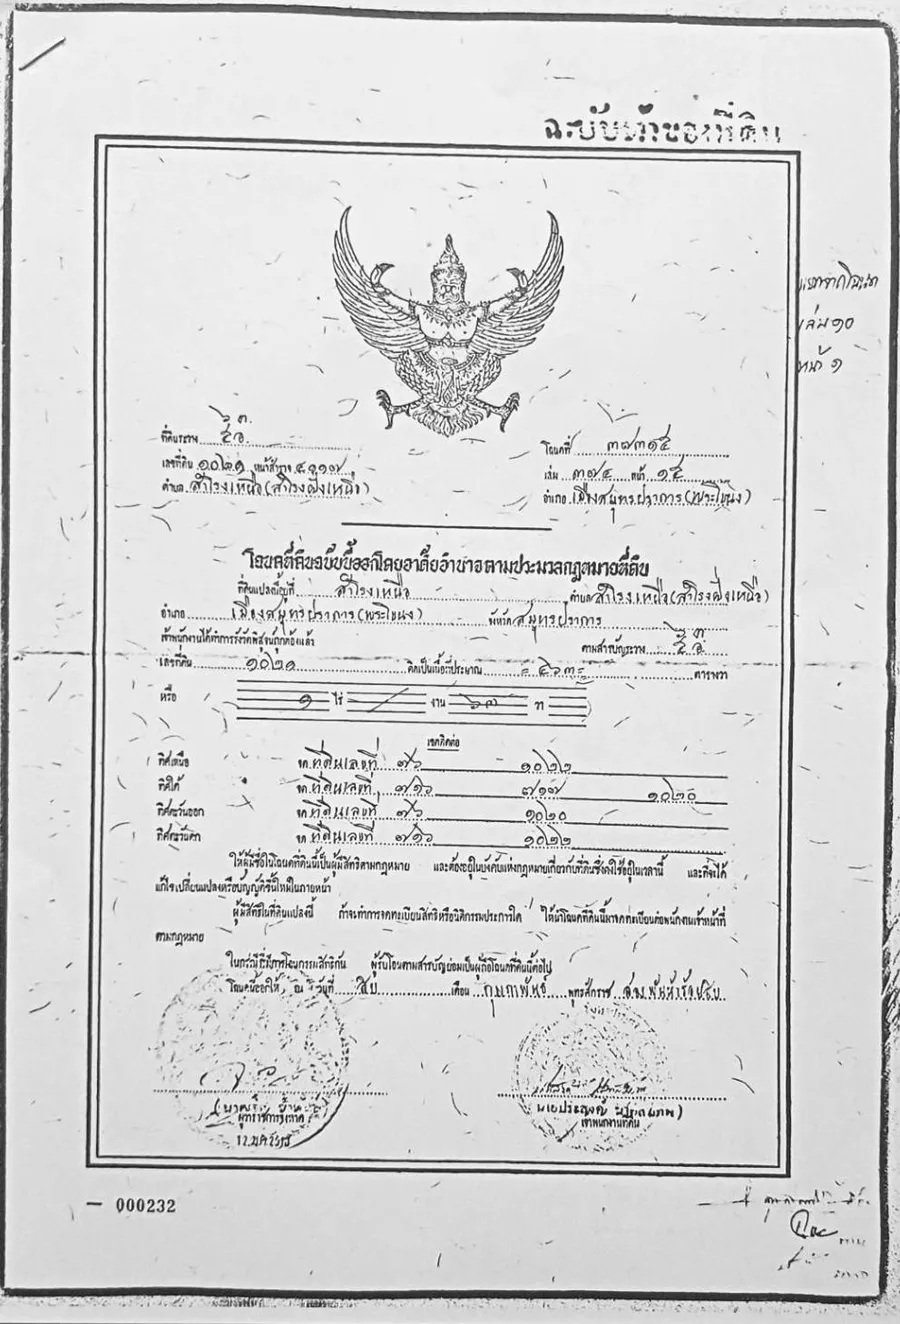 ฉะบับเจ้าของที่ดิน
แยกจากโฉนด
เล่ม ๑๐
หน้า ๑
ที่ดินระวาง
โฉนดที่ ๓๗๓๑๕
เลขที่ดิน ๑๐๒๑ หน้าสำรวจ
เล่ม ๓๗๔ หน้า ๑๕
ตำบล สำโรงเหนือ (สำโรงฝั่งเหนือ)
อำเภอ เมืองสมุทรปราการ (พระโขนง)
โฉนดที่ดินฉบับนี้ออกโดยอาศัยอำนาจตามประมวลกฎหมายที่ดิน
ที่ดินแปลงนี้อยู่ที่ สำโรงเหนือ ตำบล สำโรงเหนือ (สำโรงฝั่งเหนือ)
อำเภอ เมืองสมุทรปราการ (พระโขนง) จังหวัด สมุทรปราการ
เจ้าพนักงานได้ทำการรังวัดพิสูจน์ถูกต้องแล้ว ตามสารบัญระวาง
เลขที่ดิน ๑๐๒๑ คิดเป็นเนื้อที่ประมาณ = ๔๖๓ = ตารางวา
หรือ ๑ ไร่ งาน ๖๓ วา
เขตติดต่อ
ทิศเหนือ จด ที่ดินเลขที่ ๗๖ ๑๐๒๒
ทิศใต้ จด ที่ดินเลขที่ ๗๑๖ ๗๑๗ ๑๐๒๐
ทิศตะวันออก จด ที่ดินเลขที่ ๗๖ ๑๐๒๐
ทิศตะวันตก จด ที่ดินเลขที่ ๗๑๖ ๑๐๒๒
ให้ผู้มีชื่อในโฉนดที่ดินนี้เป็นผู้มีสิทธิตามกฎหมาย และต้องอยู่ในบังคับแห่งกฎหมายเกี่ยวกับที่ดินซึ่งคงใช้อยู่ในเวลานี้ และที่จะได้
แก้ไขเปลี่ยนแปลงหรือบัญญัติขึ้นใหม่ในภายหน้า
ผู้มีสิทธิในที่ดินแปลงนี้ ถ้าจะทำการจดทะเบียนสิทธิหรือนิติกรรมประการใด ให้นำโฉนดที่ดินนี้มาจดทะเบียนต่อพนักงานเจ้าหน้าที่
ตามกฎหมาย
ในกรณีที่มีการโอนกรรมสิทธิ์กัน ผู้รับโอนตามสารบัญย่อมเป็นผู้ถือโฉนดที่ดินนี้ต่อไป
โฉนดนี้ออกให้ ณ วันที่ สิบ เดือน กุมภาพันธ์ พุทธศักราช
เจ้าพนักงานที่ดิน
— 000232